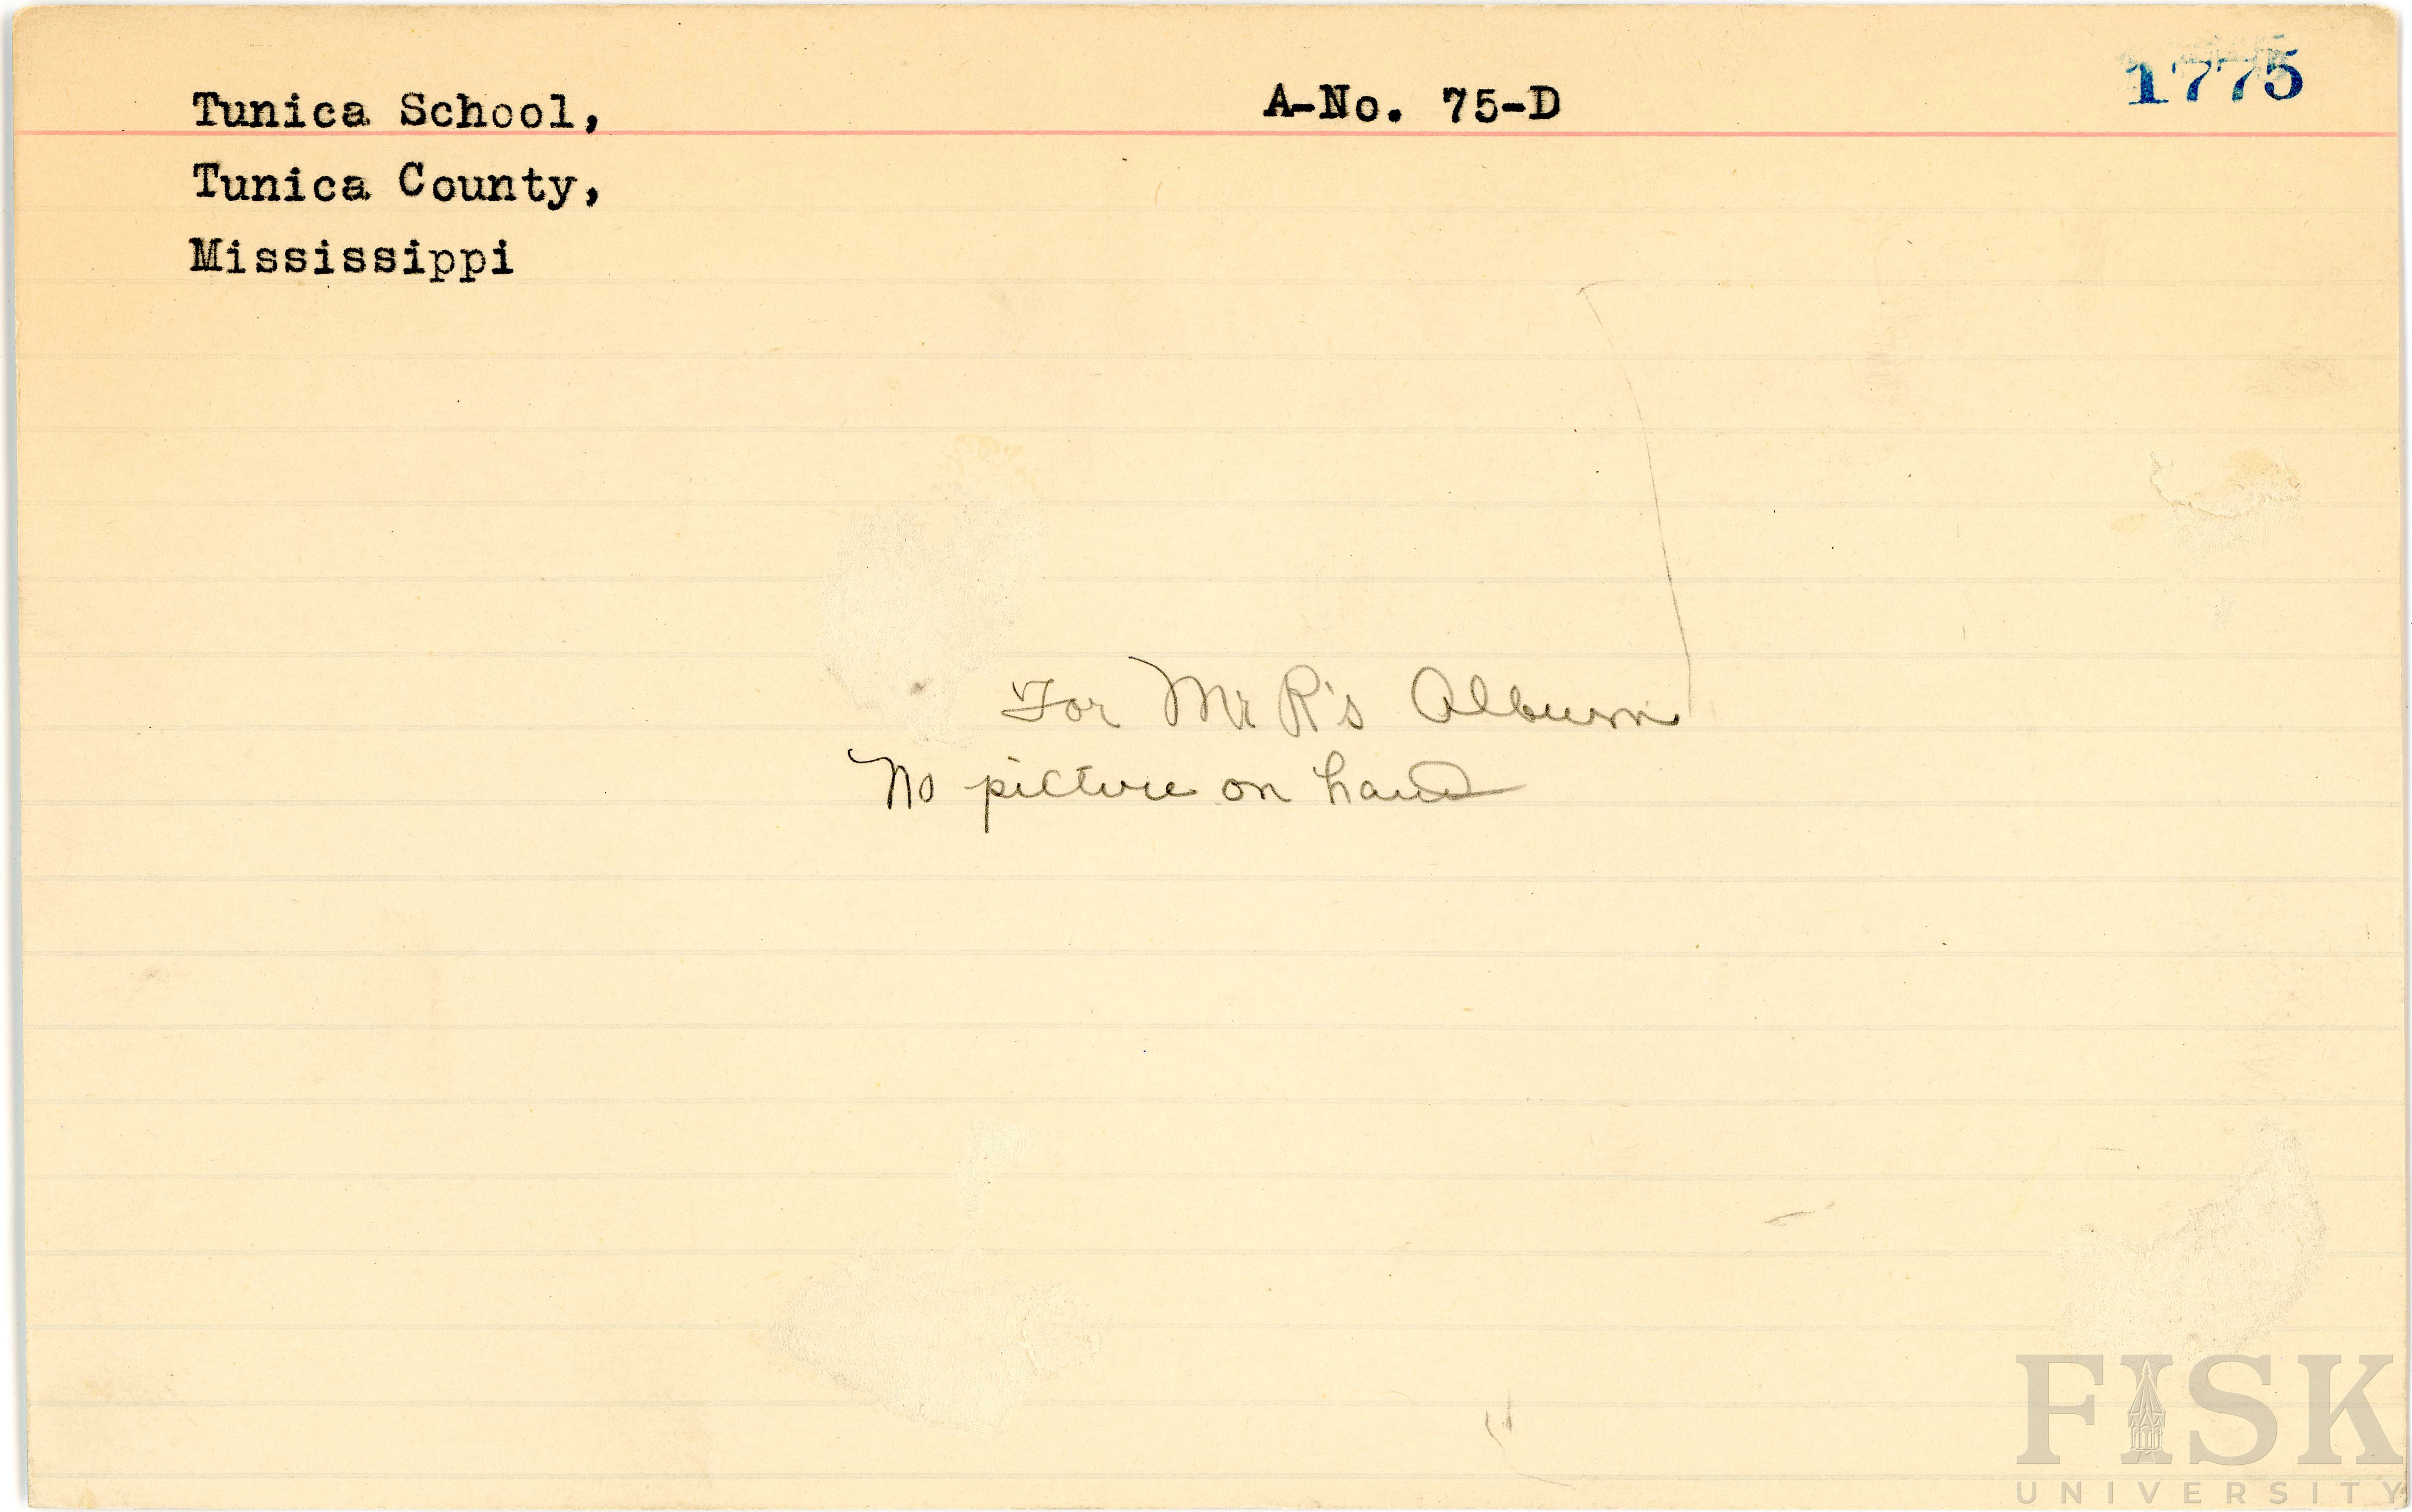 Tunica School,
A-No. 75-D
1775
Tunica County,
Mississippi
For Mr R's Album
No picture on hand
FISK
UNIVERSITY